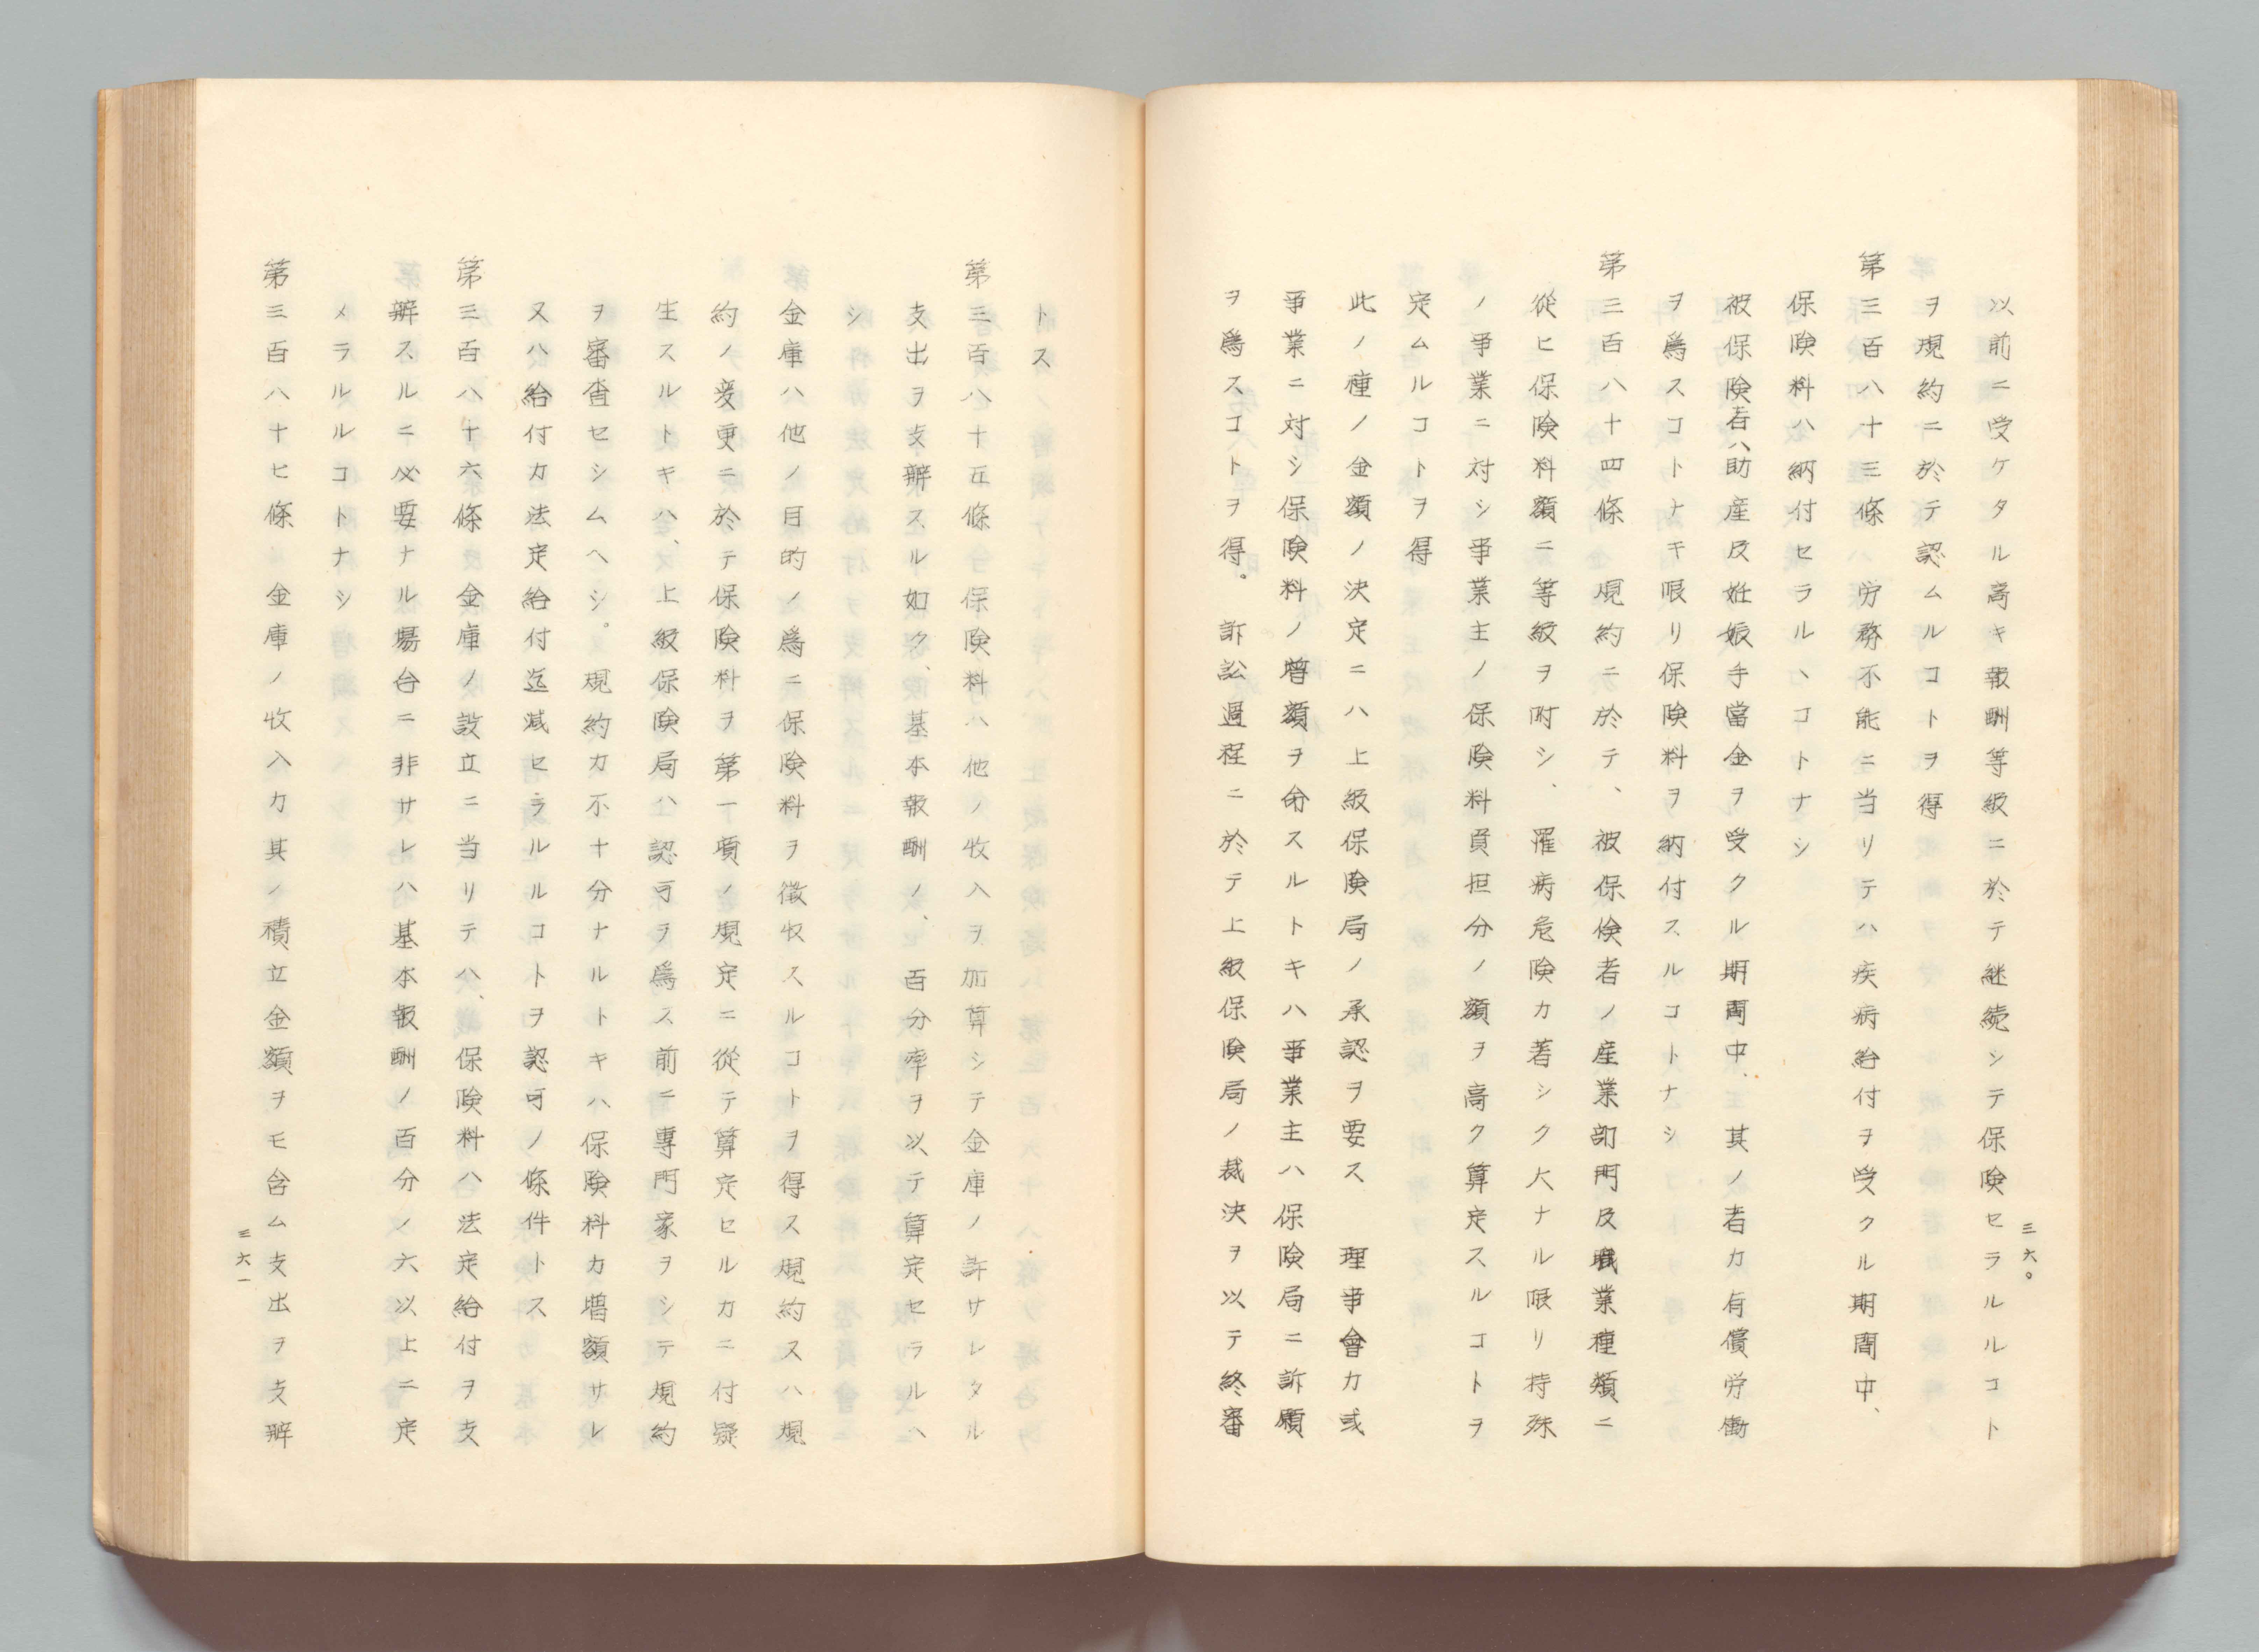 三六〇
以前ニ受ケタル高キ報酬等級ニ於テ継続シテ保険セラルルコト
ヲ規約ニ於テ認ムルコトヲ得
第三百八十三條　労務不能ニ当リテハ疾病給付ヲ受クル期間中、
保険料ハ納付セラルヽコトナシ
被保険者ハ、助産及姙娠手當金ヲ受クル期間中、其ノ者カ有償労働
ヲ爲スコトナキ限リ保険料ヲ納付スルコトナシ
第三百八十四條　規約ニ於テ、被保険者ノ産業部門及職業種類ニ
從ヒ保険料額ニ等級ヲ附シ、罹病危険カ著シク大ナル限リ特殊
ノ事業ニ対シ事業主ノ保険料負担分ノ額ヲ高ク算定スルコトヲ
定ムルコトヲ得
此ノ種ノ金額ノ決定ニハ上級保険局ノ承認ヲ要ス　理事會カ或
事業ニ対シ保険料ノ増額ヲ命スルトキハ事業主ハ保険局ニ訴願
ヲ爲スコトヲ得。訴訟過程ニ於テ上級保険局ノ裁決ヲ以テ終審
トス
第三百八十五條　保険料ハ他ノ收入ヲ加算シテ金庫ノ許サレタル
支出ヲ支辦スル如ク、基本報酬ノ、百分率ヲ以テ算定セラルヘ
シ
金庫ハ他ノ目的ノ爲ニ保険料ヲ徴收スルコトヲ得ス規約又ハ規
約ノ変更ニ於テ保険料ヲ第一項ノ規定ニ從テ算定セルカニ付疑
生スルトキハ、上級保険局ハ認可ヲ爲ス前ニ専門家ヲシテ規約
ヲ審査セシムヘシ。規約カ不十分ナルトキハ保険料カ増額サレ
又ハ給付カ法定給付迄減セラルルコトヲ認可ノ條件トス
第三百八十六條　金庫ノ設立ニ当リテハ、保険料ハ法定給付ヲ支
辦スルニ必要ナル場合ニ非サレハ基本報酬ノ百分ノ六以上ニ定
メラルルコトナシ
第三百八十七條　金庫ノ收入カ其ノ積立金額ヲモ含ム支出ヲ支辦
三六一